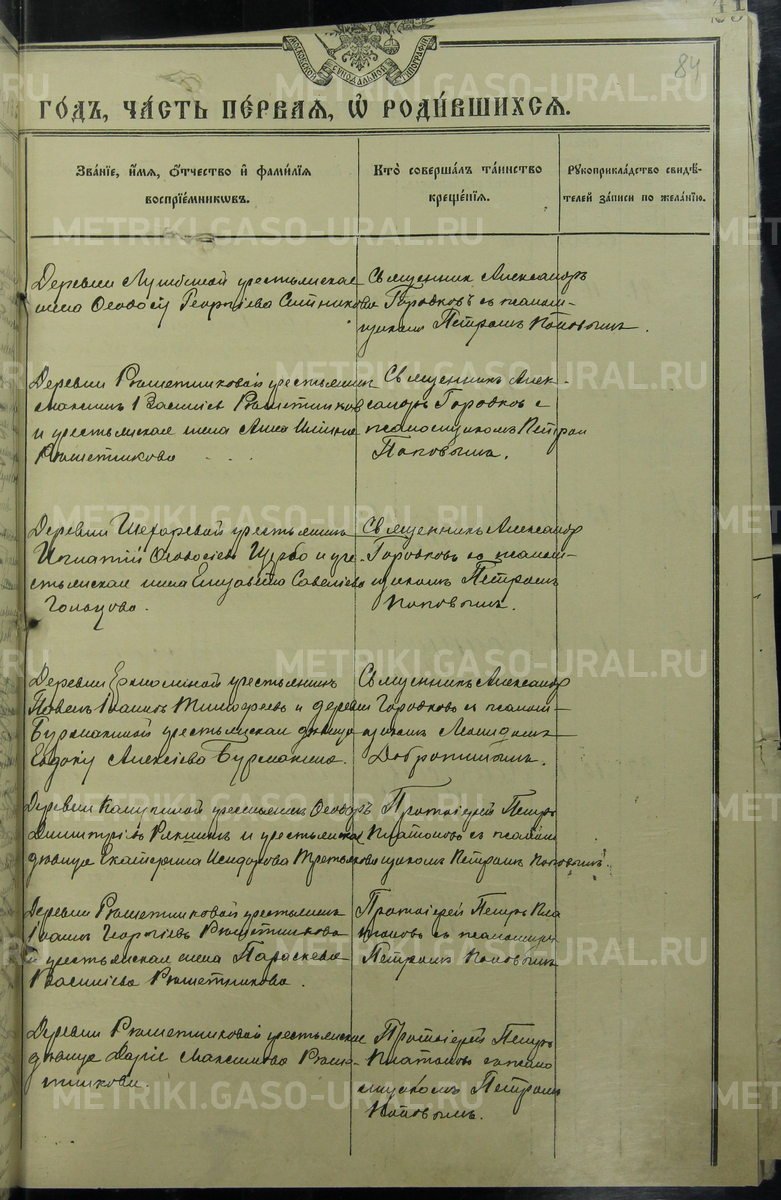 84
МОСКОВСКОЙ СѴНОДАЛЬНОЙ ТИПОГРАФІИ
ГОДЪ, ЧАСТЬ ПЕРВАЯ, Ѡ РОДИВШИХСЯ.
Званіе, имя, отчество и фамилія воспріемниковъ.
Кто совершалъ таинство крещенія.
Рукоприкладство свидѣтелей записи по желанію.
крестьянская
жена Ѳеодосія Георгіева Ситникова
Священник Александръ
Городковъ съ псалом-
щиком Петромъ Поповымъ.
Деревни Решетниковой крестьянинъ
Максим Iоаннов Решетников
и крестьянская жена Анна
Решетникова
Священникъ Алек-
сандръ Городков с
псаломщикомъ Петром
Поповымъ.
Деревни крестьянинъ
Игнатій Ѳеодосіевъ и кре-
стьянская жена Елизавета Савеліева
Голоухова.
Священникъ Александр
Городковъ съ псалом-
щикомъ Петромъ
Поповымъ.
Деревни Ермолиной крестьянинъ
Павел Iоаннов Тимофеевъ и деревни
Бурмакиной крестьянская девица
Евдокія Алексіева Бурмакина.
Священникъ Александр
Городковъ съ псалом-
щиком Леонидомъ
Добротинымъ.
Деревни крестьянинъ Ѳеодоръ
Димитріевъ и крестьянская
девица Екатерина Исидорова Третьякова
Протоіерей Петръ
Платоновъ съ псалом-
щиком Петромъ Поповымъ.
Деревни Решетниковой крестьянинъ
Iоаннъ Георгіевъ Решетникова
и крестьянская жена Параскева
Василіева Решетникова.
Протоіерей Петръ Пла
тоновъ съ псаломщик
Петромъ Поповымъ
Деревни Решетниковой крестьянская
девица Дарія Максимова Реше-
тникова.
Протоіерей Петръ
Платоновъ съ псало
мщикомъ Петромъ
Поповымъ.
METRIKI.GASO-URAL.RU